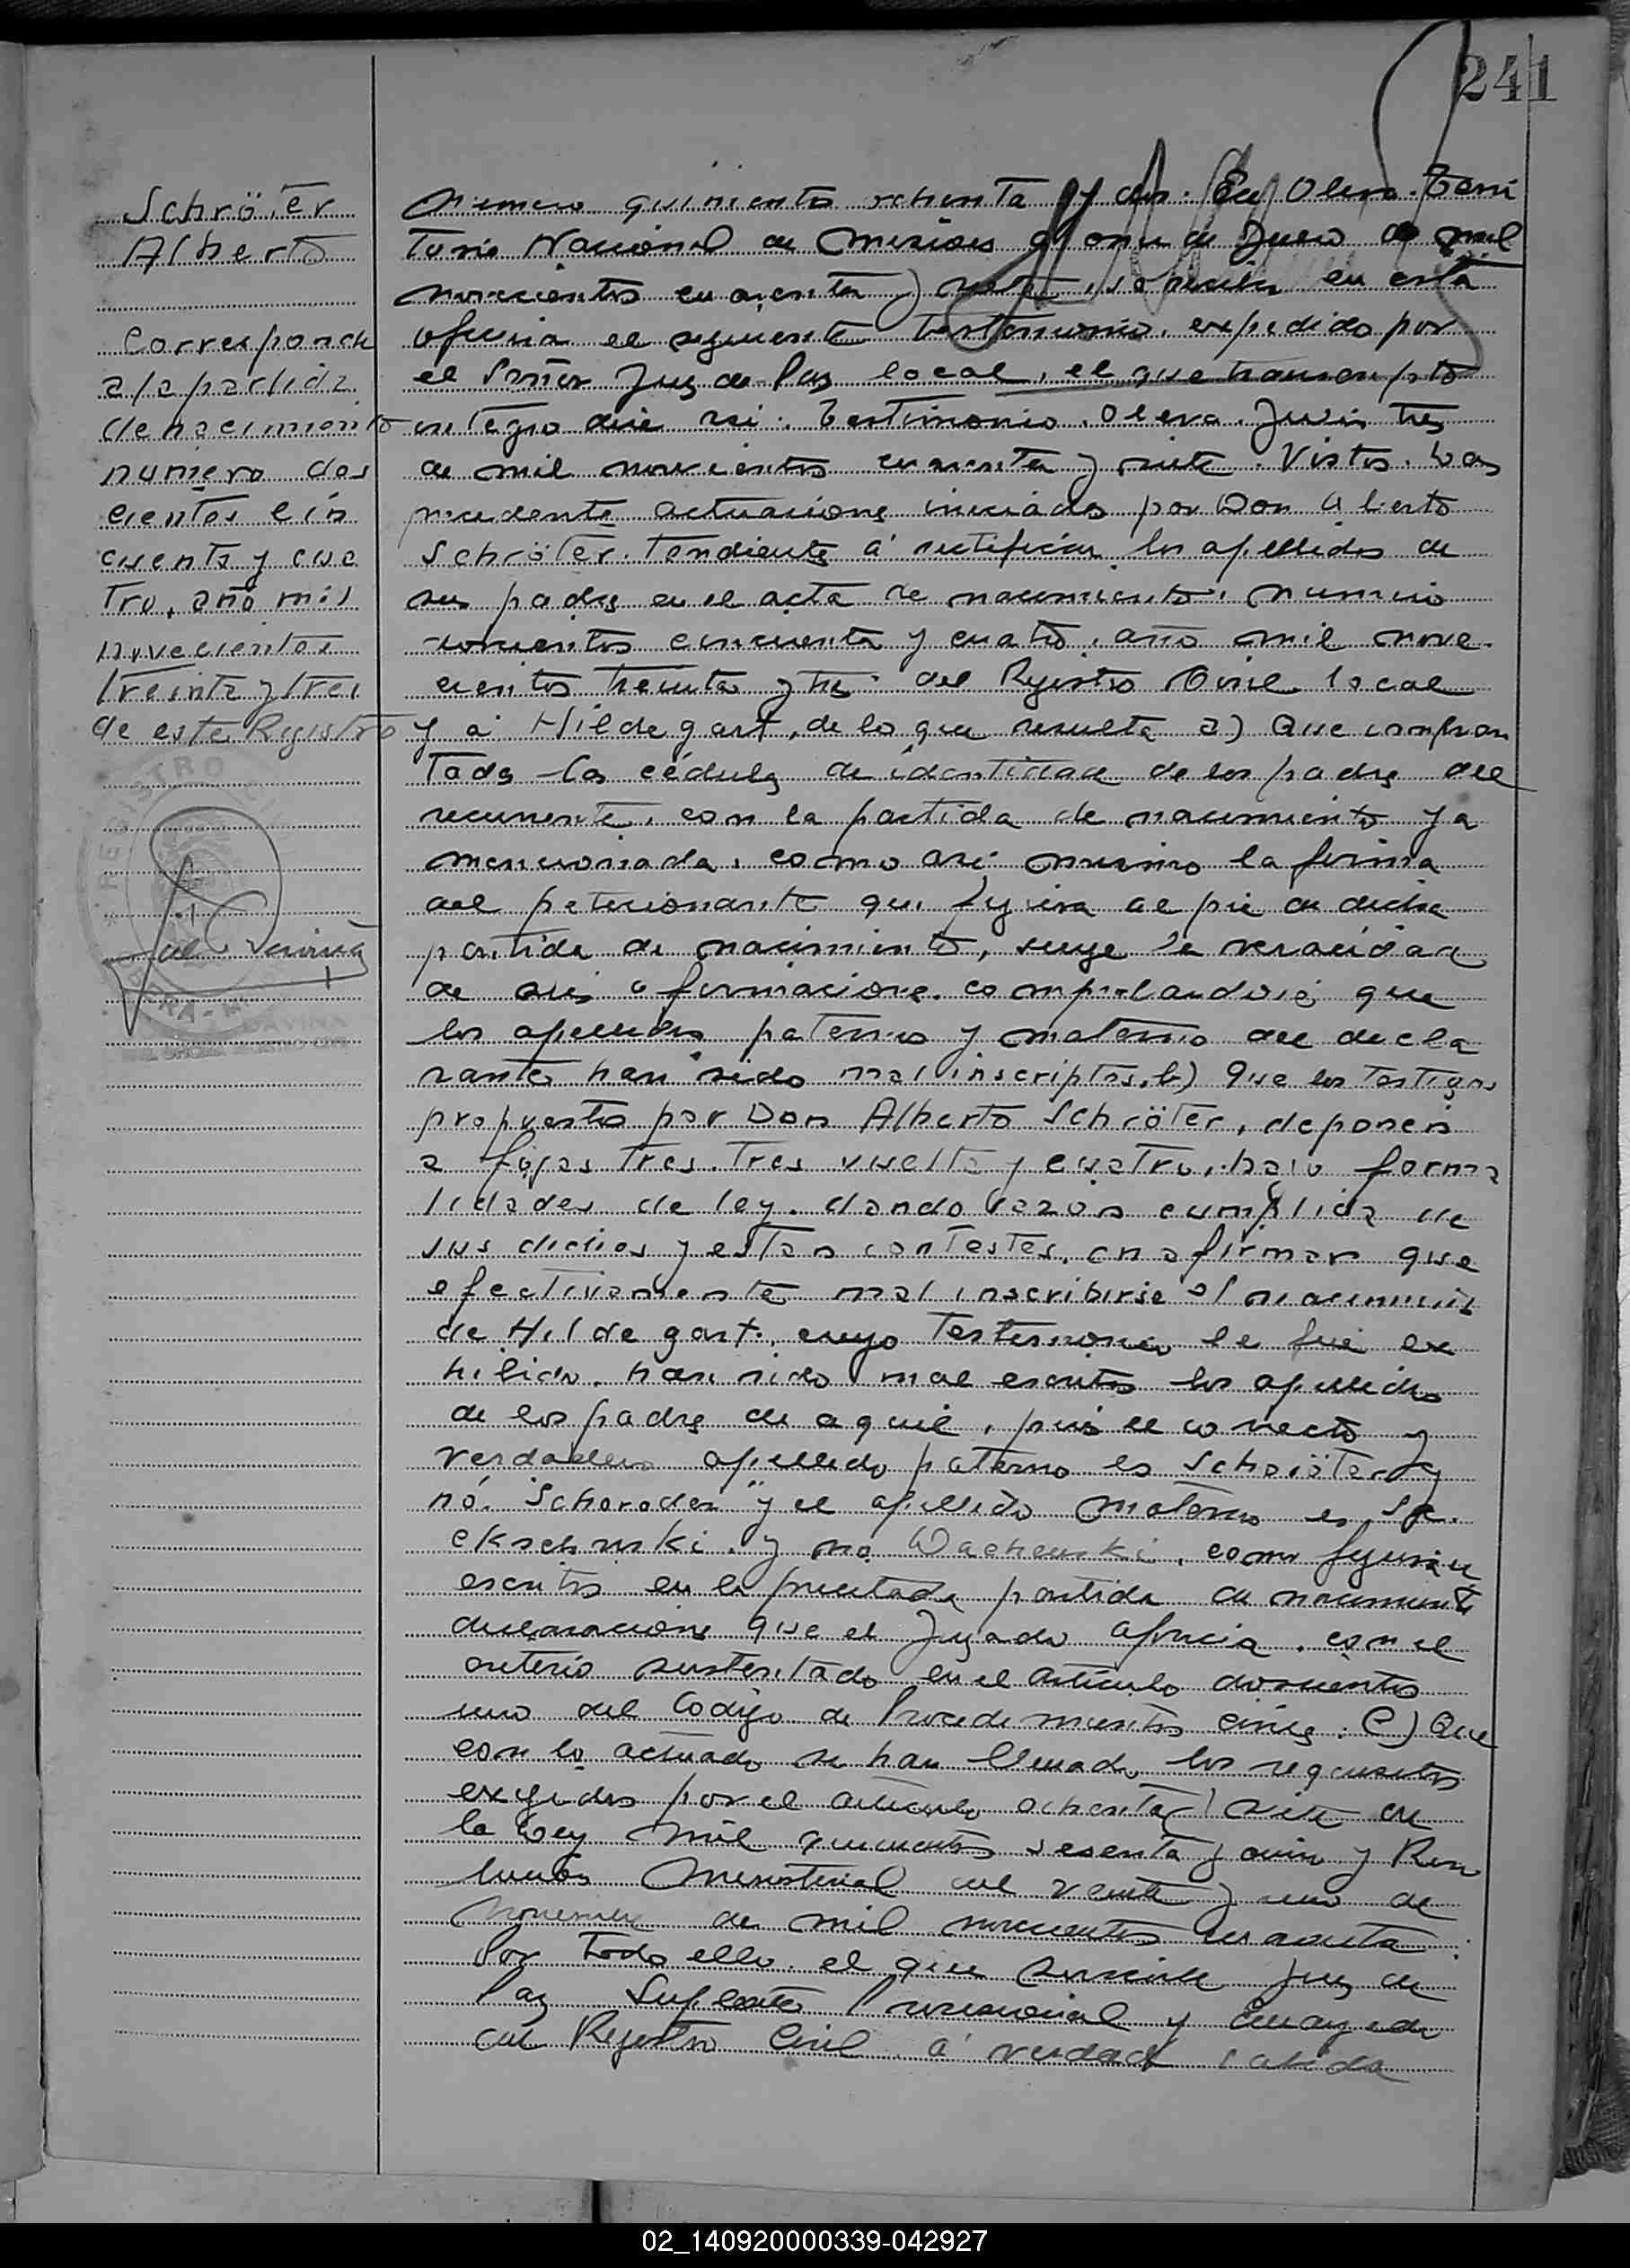 241
Schröter
Alberto
Corresponde
a la partida
de nacimiento
numero dos
cientos cin
cuenta y cua
tro, año mil
novecientos
treinta y tres
de este Registro
REGISTRO
Numero quinientos ochenta y dos. En Obera. Terri
torio Nacional de Misiones a once de Junio de mil
novecientos cuarenta y siete, se recibe en esta
oficina el siguiente testimonio, expedido por
el Señor Juez de Paz local, el que transcripto
integro dice asi: Testimonio. Obera. Junio tres
de mil novecientos cuarenta y siete. Vistos. Las
precedente actuaciones iniciadas por Don Alberto
Schröter. Tendiente á rectificar los apellidos de
sus padres en el acta de nacimiento, numero
doscientos cincuenta y cuatro, año mil nove
cientos treinta y tres del Registro Civil local
y a Hildegart, de lo que resulta a) Que confron
tadas las cédulas de identidad de los padres del
recurrente, con la partida de nacimiento ya
mencionada, como asi mismo la firma
del peticionante que figura al pie de dicha
partida de nacimiento, surge la veracidad
de sus afirmaciones comprobandose que
los apellidos paterno y materno del decla
rante han sido mal inscriptos. b) Que los testigos
propuestos por Don Alberto Schröter, deponen
a fojas tres, tres vuelta y cuatro, bajo forma
lidades de ley, dando razon cumplida de
sus dichos y estan contestes, en afirmar que
efectivamente mal inscribirse el nacimiento
de Hildegart, cuyo testimonio le fué ex
hibido, han sido mal escritos los apellidos
de los padres de aquel, pues el correcto y
verdadero apellido paterno es Schröter y
nó Schoroder y el apellido materno es
ekschuski y no Wachouski, como figuran
escritos en la precitada partida de nacimiento
declaraciones que el Juzgado aprecia, con el
criterio sustentado en el artículo doscientos
uno del Codigo de Procedimientos civiles. C) Que
con lo actuado se han llenado los requisitos
exigidos por el articulo ochenta y siete de
la Ley mil quinientos sesenta y cinco y Reso
lución Ministerial del veinte y uno de
Noviembre de mil novecientos cuarenta.
Por todo ello, el que suscribe Juez de
Paz Suplente Provisional y Encargado
del Registro Civil á verdad sabida
02_140920000339-042927